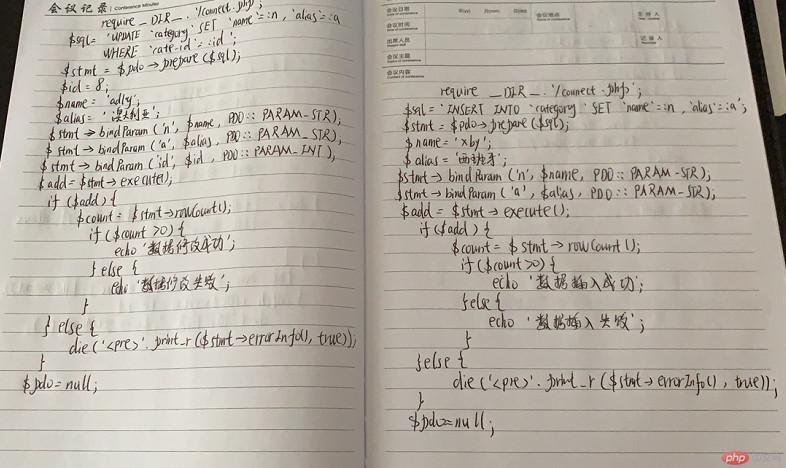 会议记录 Conference Minutes
require __DIR__ . '/connect.php';
$sql = 'UPDATE `category` SET `name`=:n, `alias`=:a
WHERE `cate-id`=:id';
$stmt = $pdo->prepare($sql);
$id = 8;
$name = 'adly';
$alias = '澳大利亚';
$stmt->bindParam('n', $name, PDO::PARAM_STR);
$stmt->bindParam('a', $alias, PDO::PARAM_STR);
$stmt->bindParam('id', $id, PDO::PARAM_INT);
$add = $stmt->execute();
if ($add) {
$count = $stmt->rowCount();
if ($count>0) {
echo '数据修改成功';
} else {
echo '数据修改失败';
}
} else {
die('<pre>'.print_r($stmt->errorInfo(), true));
}
$pdo = null;
会议日期
会议时间
出席人员
会议主题
会议内容
会议地点
主持人
记录人
require __DIR__ . '/connect.php';
$sql = 'INSERT INTO `category` SET `name`=:n, `alias`=:a';
$stmt = $pdo->prepare($sql);
$name = 'xby';
$alias = '西班牙';
$stmt->bindParam('n', $name, PDO::PARAM_STR);
$stmt->bindParam('a', $alias, PDO::PARAM_STR);
$add = $stmt->execute();
if ($add) {
$count = $stmt->rowCount();
if ($count>0) {
echo '数据插入成功';
} else {
echo '数据插入失败';
}
} else {
die('<pre>'.print_r($stmt->errorInfo(), true));
}
$pdo = null;
php